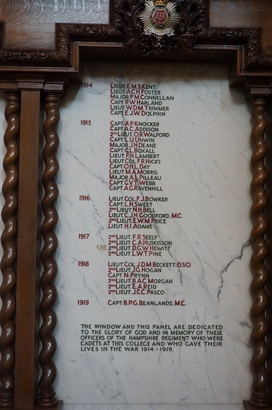 1914 LIEUT. E.M.S. KENT
LIEUT. A.C.H. FOSTER
MAJOR P.M. CONNELLAN
CAPT. R.W. HARLAND
LIEUT. W.D.M. TRIMMER
CAPT. E.J.W. DOLPHIN
1915 CAPT. A.P. KNOCKER
CAPT. A.C. ADDISON
2ND LIEUT. O.R. WALFORD
CAPT. L.U. UNWIN
MAJOR J.H. DEANE
CAPT. G.L. BOXALL
LIEUT. F.H. LAMBERT
LIEUT. COL. F.R. HICKS
CAPT. O.H.L. DAY
LIEUT. M.A. MORRIS
MAJOR A.S. PILLEAU
CAPT. G.V.T. WEBB
CAPT. A.G. RAVENHILL
1916 LIEUT. COL. F.J. BOWKER
CAPT. L.H. SWEET
2ND LIEUT. N.H. BELL
LIEUT. C.J.H. GOODFORD, M.C.
2ND LIEUT. E.W.M. PRICE
LIEUT. H.I. ADAMS
1917 2ND LIEUT. F.R. SEELY
2ND LIEUT. C.A. HUSKISSON
2ND LIEUT. D.G.W. HEWITT
2ND LIEUT. L.W.T. PINE
1918 LIEUT. COL. J.D.M. BECKETT. D.S.O.
2ND LIEUT. J.G. HOGAN
CAPT. N. PRYNN
2ND LIEUT. R.A.C. MORGAN
2ND LIEUT. E.A. REID
2ND LIEUT. J.C.C. PASCO
1919 CAPT. B.P.G. BEANLANDS, M.C.
THE WINDOW AND THIS PANEL ARE DEDICATED
TO THE GLORY OF GOD AND IN MEMORY OF THESE
OFFICERS OF THE HAMPSHIRE REGIMENT WHO WERE
CADETS AT THIS COLLEGE AND WHO GAVE THEIR
LIVES IN THE WAR 1914-1919.